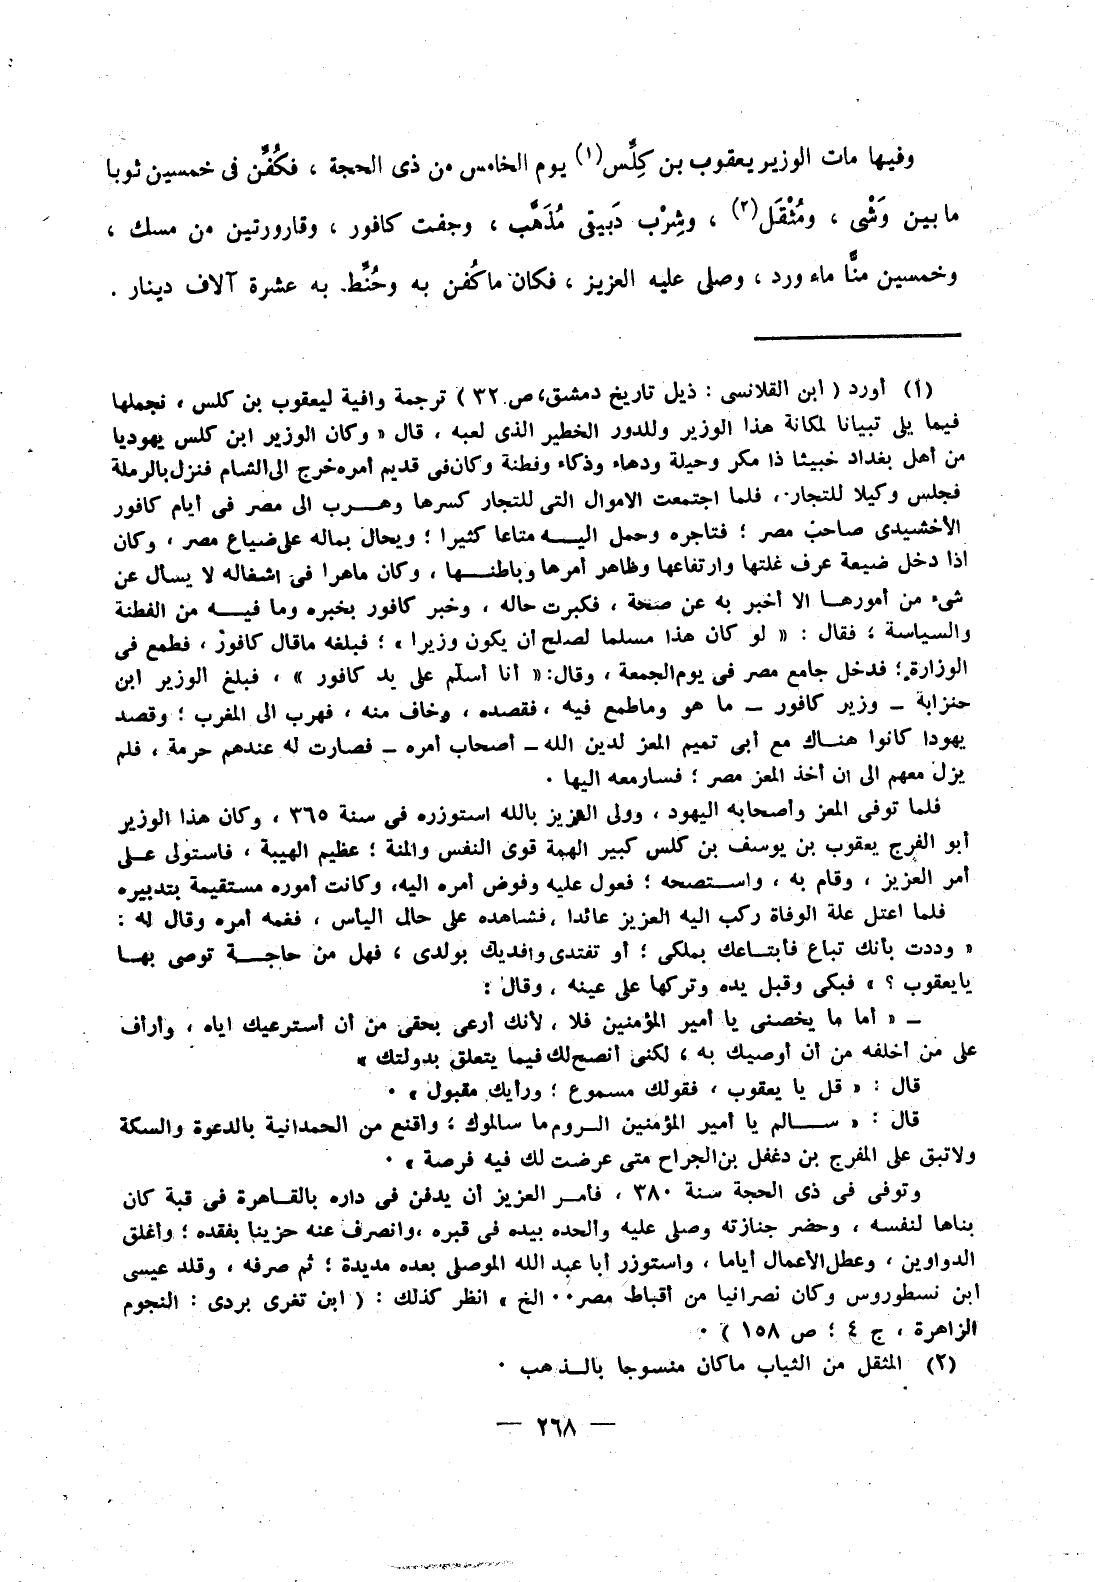 وفيها مات الوزير يعقوب بن كِلِّس(١) يوم الخامس من ذى الحجة ، فكُفِّن فى خمسين ثوبا
ما بين وَشْى ، ومُثْقَل(٢) ، وشِرْب دَبيقى مُذَهَّب ، وجفت كافور ، وقارورتين من مسك ،
وخمسين منًّا ماء ورد ، وصلى عليه العزيز ، فكان ما كُفن به وحُنِّط به عشرة آلاف دينار .
(١) أورد ( ابن القلانسى : ذيل تاريخ دمشق، ص ٣٢ ) ترجمة وافية ليعقوب بن كلس ، نجملها
فيما يلى تبيانا لمكانة هذا الوزير وللدور الخطير الذى لعبه ، قال « وكان الوزير ابن كلس يهوديا
من أهل بغداد خبيثا ذا مكر وحيلة ودهاء وذكاء وفطنة وكان فى قديم أمره خرج الى الشام فنزل بالرملة
فجلس وكيلا للتجار ، فلما اجتمعت الاموال التى للتجار كسرها وهرب الى مصر فى أيام كافور
الأخشيدى صاحب مصر ؛ فتاجره وحمل اليه متاعا كثيرا ؛ ويحال بماله على ضياع مصر ، وكان
اذا دخل ضيعة عرف غلتها وارتفاعها وظاهر أمرها وباطنها ، وكان ماهرا فى اشغاله لا يسال عن
شىء من أمورها الا أخبر به عن صحة ، فكبرت حاله ، وخبر كافور بخبره وما فيه من الفطنة
والسياسة ؛ فقال : « لو كان هذا مسلما لصلح أن يكون وزيرا » ؛ فبلغه ماقال كافور ، فطمع فى
الوزارة ؛ فدخل جامع مصر فى يوم الجمعة ، وقال: « أنا أسلم على يد كافور » ، فبلغ الوزير ابن
حنزابة – وزير كافور – ما هو وماطمع فيه ، فقصده ، وخاف منه ، فهرب الى المغرب ؛ وقصد
يهودا كانوا هناك مع أبى تميم المعز لدين الله – أصحاب أمره – فصارت له عندهم حرمة ، فلم
يزل معهم الى ان أخذ المعز مصر ؛ فسار معه اليها .
فلما توفى المعز وأصحابه اليهود ، وولى العزيز بالله استوزره فى سنة ٣٦٥ ، وكان هذا الوزير
أبو الفرج يعقوب بن يوسف بن كلس كبير الهمة قوى النفس والمنة ؛ عظيم الهيبة ، فاستولى على
أمر العزيز ، وقام به ، واستصحه ؛ فعول عليه وفوض أمره اليه، وكانت أموره مستقيمة بتدبيره
فلما اعتل علة الوفاة ركب اليه العزيز عائدا ، فشاهده على حال اليأس ، فغمه أمره وقال له :
« وددت بأنك تباع فأبتاعك بملكى ؛ أو تفتدى وافديك بولدى ، فهل من حاجة توصى بها
يايعقوب ؟ » فبكى وقبل يده وتركها على عينه ، وقال :
– « أما ما يخصنى يا أمير المؤمنين فلا ، لأنك أرعى بحقى من أن أسترعيك اياه ، وأرأف
على من أخلفه من أن أوصيك به ، لكنى أنصح لك فيما يتعلق بدولتك »
قال : « قل يا يعقوب ، فقولك مسموع ؛ ورأيك مقبول » .
قال : « سالم يا أمير المؤمنين الروم ما سالموك ؛ واقنع من الحمدانية بالدعوة والسكة
ولاتبق على المفرج بن دغفل بن الجراح متى عرضت لك فيه فرصة » .
وتوفى فى ذى الحجة سنة ٣٨٠ ، فأمر العزيز أن يدفن فى داره بالقاهرة فى قبة كان
بناها لنفسه ، وحضر جنازته وصلى عليه وألحده بيده فى قبره ، وانصرف عنه حزينا بفقده ؛ وأغلق
الدواوين ، وعطل الأعمال أياما ، واستوزر أبا عبد الله الموصلى بعده مديدة ؛ ثم صرفه ، وقلد عيسى
ابن نسطوروس وكان نصرانيا من أقباط مصر .. الخ » انظر كذلك : ( ابن تغرى بردى : النجوم
الزاهرة ، ج ٤ ؛ ص ١٥٨ ) .
(٢) المثقل من الثياب ماكان منسوجا بالذهب .
— ٢٦٨ —